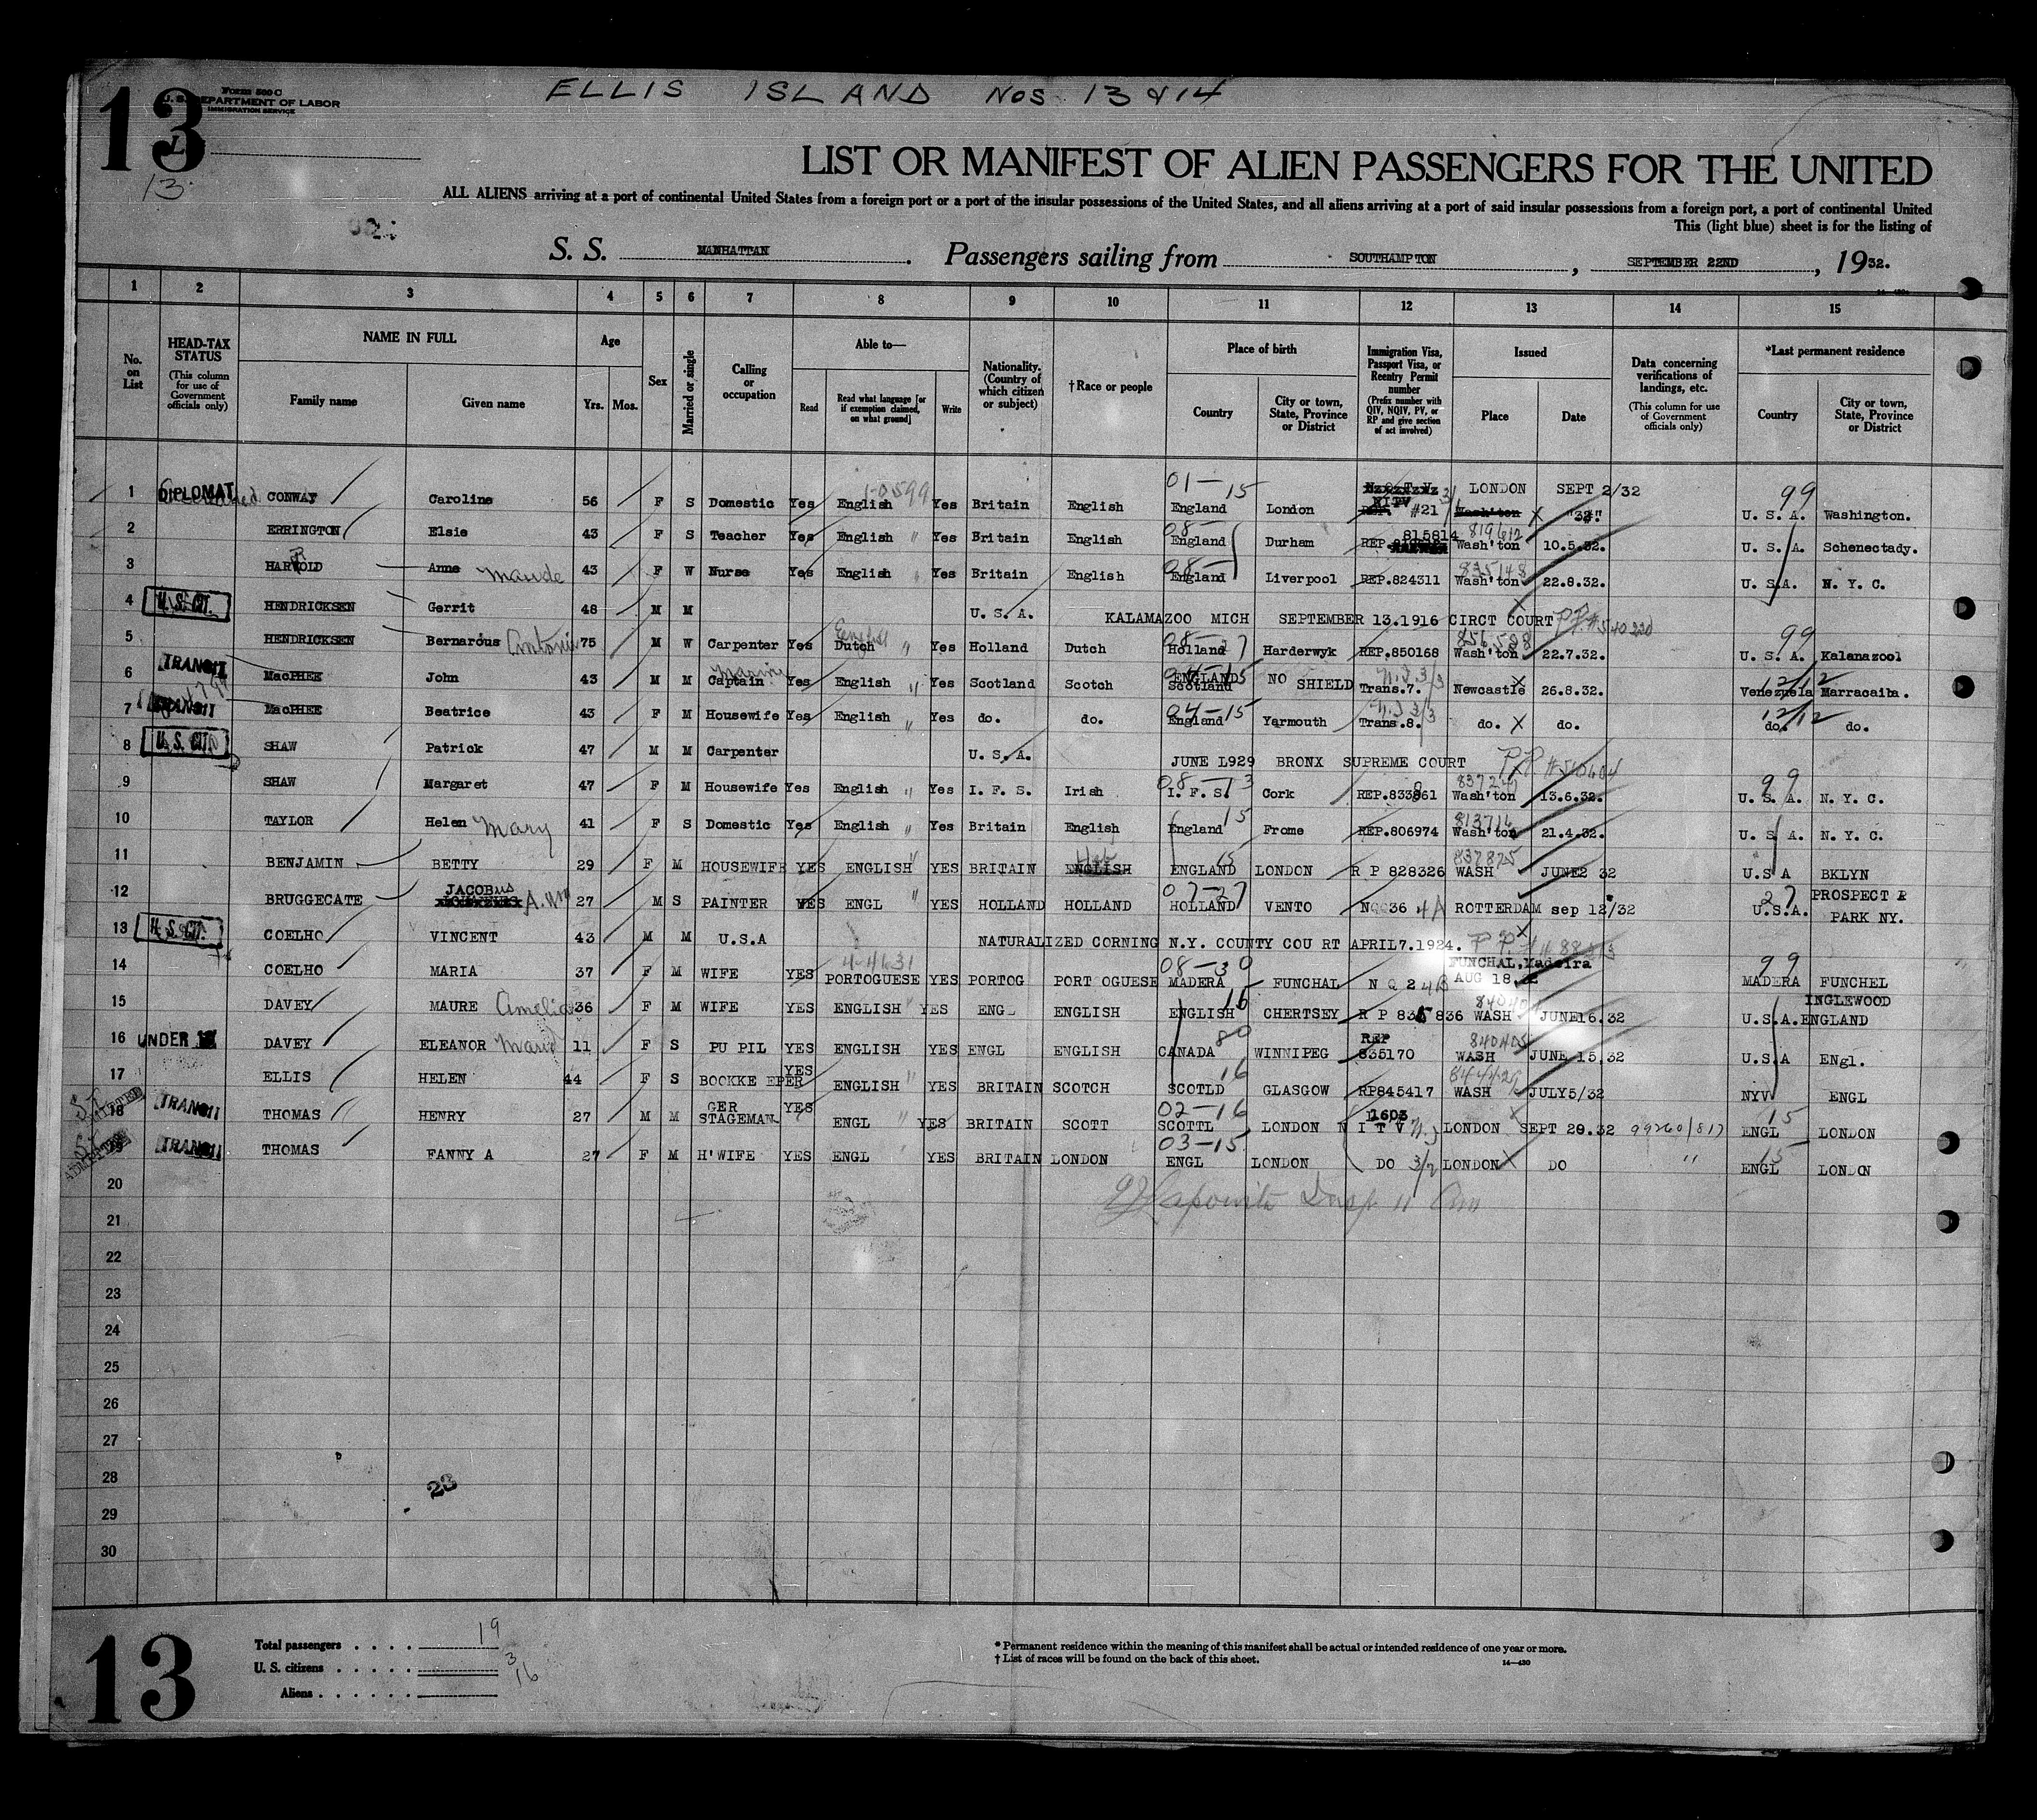 13
Form 500 C
U. S. DEPARTMENT OF LABOR
IMMIGRATION SERVICE
ELLIS ISLAND NOS 13 & 14
13
LIST OR MANIFEST OF ALIEN PASSENGERS FOR THE UNITED
ALL ALIENS arriving at a port of continental United States from a foreign port or a port of the insular possessions of the United States, and all aliens arriving at a port of said insular possessions from a foreign port, a port of continental United
This (light blue) sheet is for the listing of
S. S. MANHATTAN. Passengers sailing from SOUTHAMPTON, SEPTEMBER 22ND, 1932.
1 2 3 4 5 6 7 8 9 10 11 12 13 14 15
No. on List
HEAD-TAX STATUS (This column for use of Government officials only)
NAME IN FULL Family name Given name
Age Yrs. Mos.
Sex
Married or single
Calling or occupation
Able to— Read Read what language [or if exemption claimed, on what ground] Write
Nationality. (Country of which citizen or subject)
† Race or people
Place of birth Country City or town, State, Province or District
Immigration Visa, Passport Visa, or Reentry Permit number (Prefix number with QIV, NQIV, PV, or RP and give section of act involved)
Issued Place Date
Data concerning verifications of landings, etc. (This column for use of Government officials only)
*Last permanent residence Country City or town, State, Province or District
1 DIPLOMAT CONWAY Caroline 56 F S Domestic Yes English 1-0599 Yes Britain English 01-15 England London NITV #21 3/ LONDON SEPT 2/32 99 U. S. A. Washington.
2 ERRINGTON Elsie 43 F S Teacher Yes English " Yes Britain English 08- England Durham REP. 815814 819612 Wash'ton 10.5.32. U. S. A. Schenectady.
3 HARROLD Anne Maude 43 F W Nurse Yes English " Yes Britain English 08- England Liverpool REP.824311 835148 Wash'ton 22.8.32. U. S.A. N. Y. C.
4 U. S. CIT. HENDRICKSEN Gerrit 48 M M U. S. A. KALAMAZOO MICH SEPTEMBER 13.1916 CIRCT COURT P.P.#540220
5 HENDRICKSEN Bernardus Antonie 75 M W Carpenter Yes English Dutch " Yes Holland Dutch 08-27 Holland Harderwyk REP.850168 856,588 Wash'ton 22.7.32. 99 U. S. A. Kalanazool
6 TRANSIT MacPHEE John 43 M M Captain Yes English " Yes Scotland Scotch 04-15 ENGLAND Scotland NO SHIELD Trans.7. 3/3 Newcastle 26.8.32. 12/12 Venezuela Marracaita.
7 TRANSIT MacPHEE Beatrice 43 F M Housewife Yes English " Yes do. do. 04-15 England Yarmouth Trans.8. 3/3 do. do. 12/12 do. do.
8 U. S. CIT. SHAW Patrick 47 M M Carpenter U. S. A. JUNE 1929 BRONX SUPREME COURT PP #510604
9 SHAW Margaret 47 F M Housewife Yes English " Yes I. F. S. Irish 08-13 I. F. S. Cork REP.833861 Wash'ton 13.6.32. 99 U. S. A. N. Y. C.
10 TAYLOR Helen Mary 41 F S Domestic Yes English " Yes Britain English 15 England Frome REP.806974 813716 Wash'ton 21.4.32. U. S A. N. Y. C.
11 BENJAMIN BETTY 29 F M HOUSEWIFE YES ENGLISH " YES BRITAIN Heb ENGLISH 15 ENGLAND LONDON R P 828326 837825 WASH JUNE2 32 U.S A BKLYN
12 BRUGGECATE JACOBUS A. Wm 27 M S PAINTER YES ENGL " YES HOLLAND HOLLAND 07-27 HOLLAND VENTO NQ 36 4A ROTTERDAM sep 12/32 27 U.S.A. PROSPECT P PARK NY.
13 U. S. CIT. COELHO VINCENT 43 M M U.S.A NATURALIZED CORNING N.Y. COUNTY COU RT APRIL7.1924.
14 COELHO MARIA 37 F M WIFE YES 4-4631 PORTOGUESE YES PORTOG PORT OGUESE 08-30 MADERA FUNCHAL N Q 2 4B FUNCHAL, Madeira AUG 18 99 MADERA FUNCHEL
15 DAVEY MAURE Amelia 36 F M WIFE YES ENGLISH " YES ENG ENGLISH 15 ENGLISH CHERTSEY R P 836 WASH JUNE16.32 U.S.A. INGLEWOOD ENGLAND
16 UNDER DAVEY ELEANOR Maud 11 F S PU PIL YES ENGLISH YES ENGL ENGLISH 80 CANADA WINNIPEG REP 835170 840405 WASH JUNE 15,32 U.S.A ENgl.
17 ELLIS HELEN 44 F S BOOKKE EPER YES ENGLISH " YES BRITAIN SCOTCH 16 SCOTLD GLASGOW RP845417 WASH JULY5/32 NYV ENGL
18 TRANSIT THOMAS HENRY 27 M M GER STAGEMAN YES ENGL " YES BRITAIN SCOTT 02-16 SCOTTL LONDON 1603 N I T V LONDON SEPT 20.32 99260/817 15 ENGL LONDON
19 TRANSIT THOMAS FANNY A 27 F M H'WIFE YES ENGL YES BRITAIN LONDON 03-15 ENGL LONDON DO 3/2 LONDON DO " 15 ENGL LONDON
20
21
22
23
24
25
26
27
28
29
30
23
13
Total passengers . . . . 19
U. S. citizens . . . . . 3
Aliens . . . . . . 16
* Permanent residence within the meaning of this manifest shall be actual or intended residence of one year or more.
† List of races will be found on the back of this sheet.
14—430